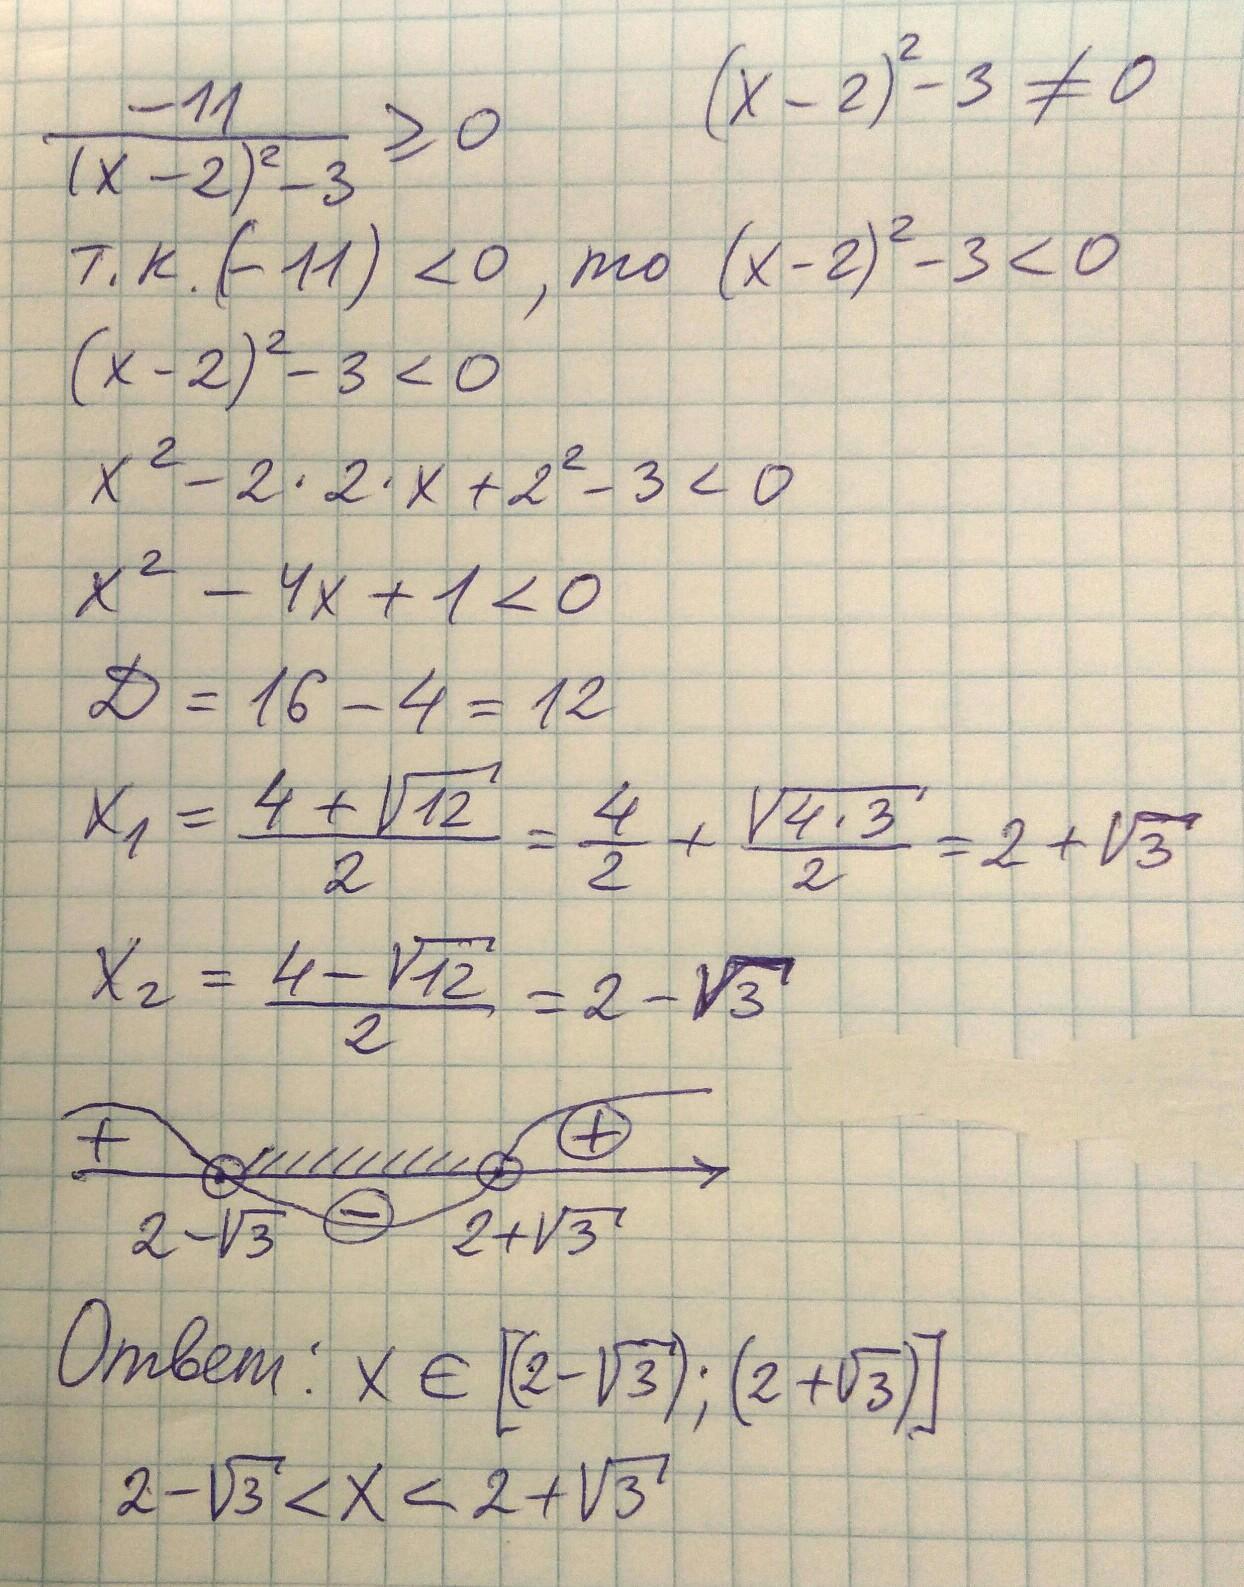 -11/((x-2)²-3) ⩾ 0 (x-2)²-3 ≠ 0
т.к. (-11) < 0, то (x-2)²-3 < 0
(x-2)²-3 < 0
x²-2·2·x+2²-3 < 0
x² - 4x + 1 < 0
D = 16 - 4 = 12
x₁ = (4+√12)/2 = 4/2 + √(4·3)/2 = 2+√3
x₂ = (4-√12)/2 = 2-√3
+ - +
2-√3 2+√3
Ответ: x ∈ [(2-√3); (2+√3)]
2-√3 < x < 2+√3